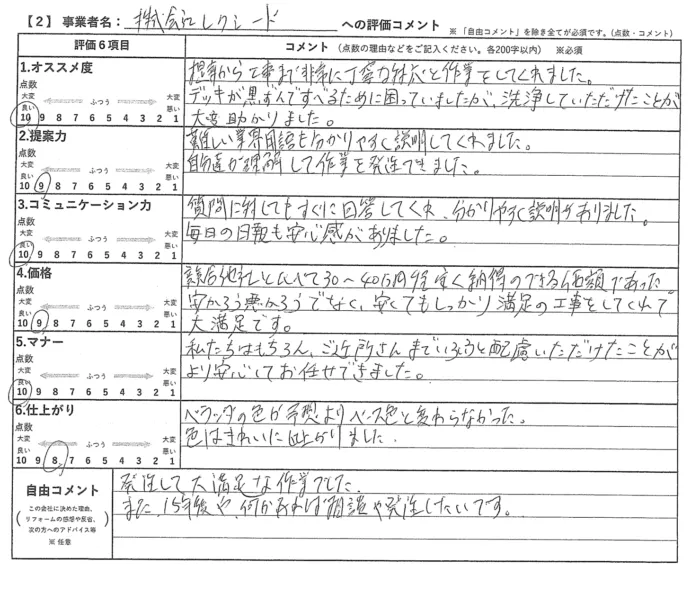 【2】 事業者名： 株式会社レクシード への評価コメント ※「自由コメント」を除き全てが必須です。（点数・コメント）
評価６項目 コメント （点数の理由などをご記入ください。各200字以内） ※必須
1.オススメ度
点数
大変 大変
良い ふつう 悪い
10 9 8 7 6 5 4 3 2 1
提案から工事まで非常に丁寧な対応と作業をしてくれました。
デッキが黒ずんですべるために困っていましたが、洗浄していただけたことが
大変助かりました。
2.提案力
点数
大変 大変
良い ふつう 悪い
10 9 8 7 6 5 4 3 2 1
難しい業界用語も分かりやすく説明してくれました。
自分達が理解して作業を発注できました。
3.コミュニケーション力
点数
大変 大変
良い ふつう 悪い
10 9 8 7 6 5 4 3 2 1
質問に対してもすぐに回答してくれ、分かりやすく説明がありました。
毎日の日報も安心感がありました。
4.価格
点数
大変 大変
良い ふつう 悪い
10 9 8 7 6 5 4 3 2 1
他社とくらべて30～40万円程安く納得のできる価額であった。
安かろう悪かろうでなく、安くてもしっかり満足の工事をしてくれて
大満足です。
5.マナー
点数
大変 大変
良い ふつう 悪い
10 9 8 7 6 5 4 3 2 1
私たちはもちろん、ご近所さんまでいろいろと配慮いただけたことが
より安心してお任せできました。
6.仕上がり
点数
大変 大変
良い ふつう 悪い
10 9 8 7 6 5 4 3 2 1
ベランダの色が予想よりベース色と変わらなかった。
色はきれいに仕上がりました。
自由コメント
この会社に決めた理由、
リフォームの感想や反省、
次の方へのアドバイス等
※ 任意
発注して大満足な作業でした。
また、15年後や、何かあれば相談や発注したいです。